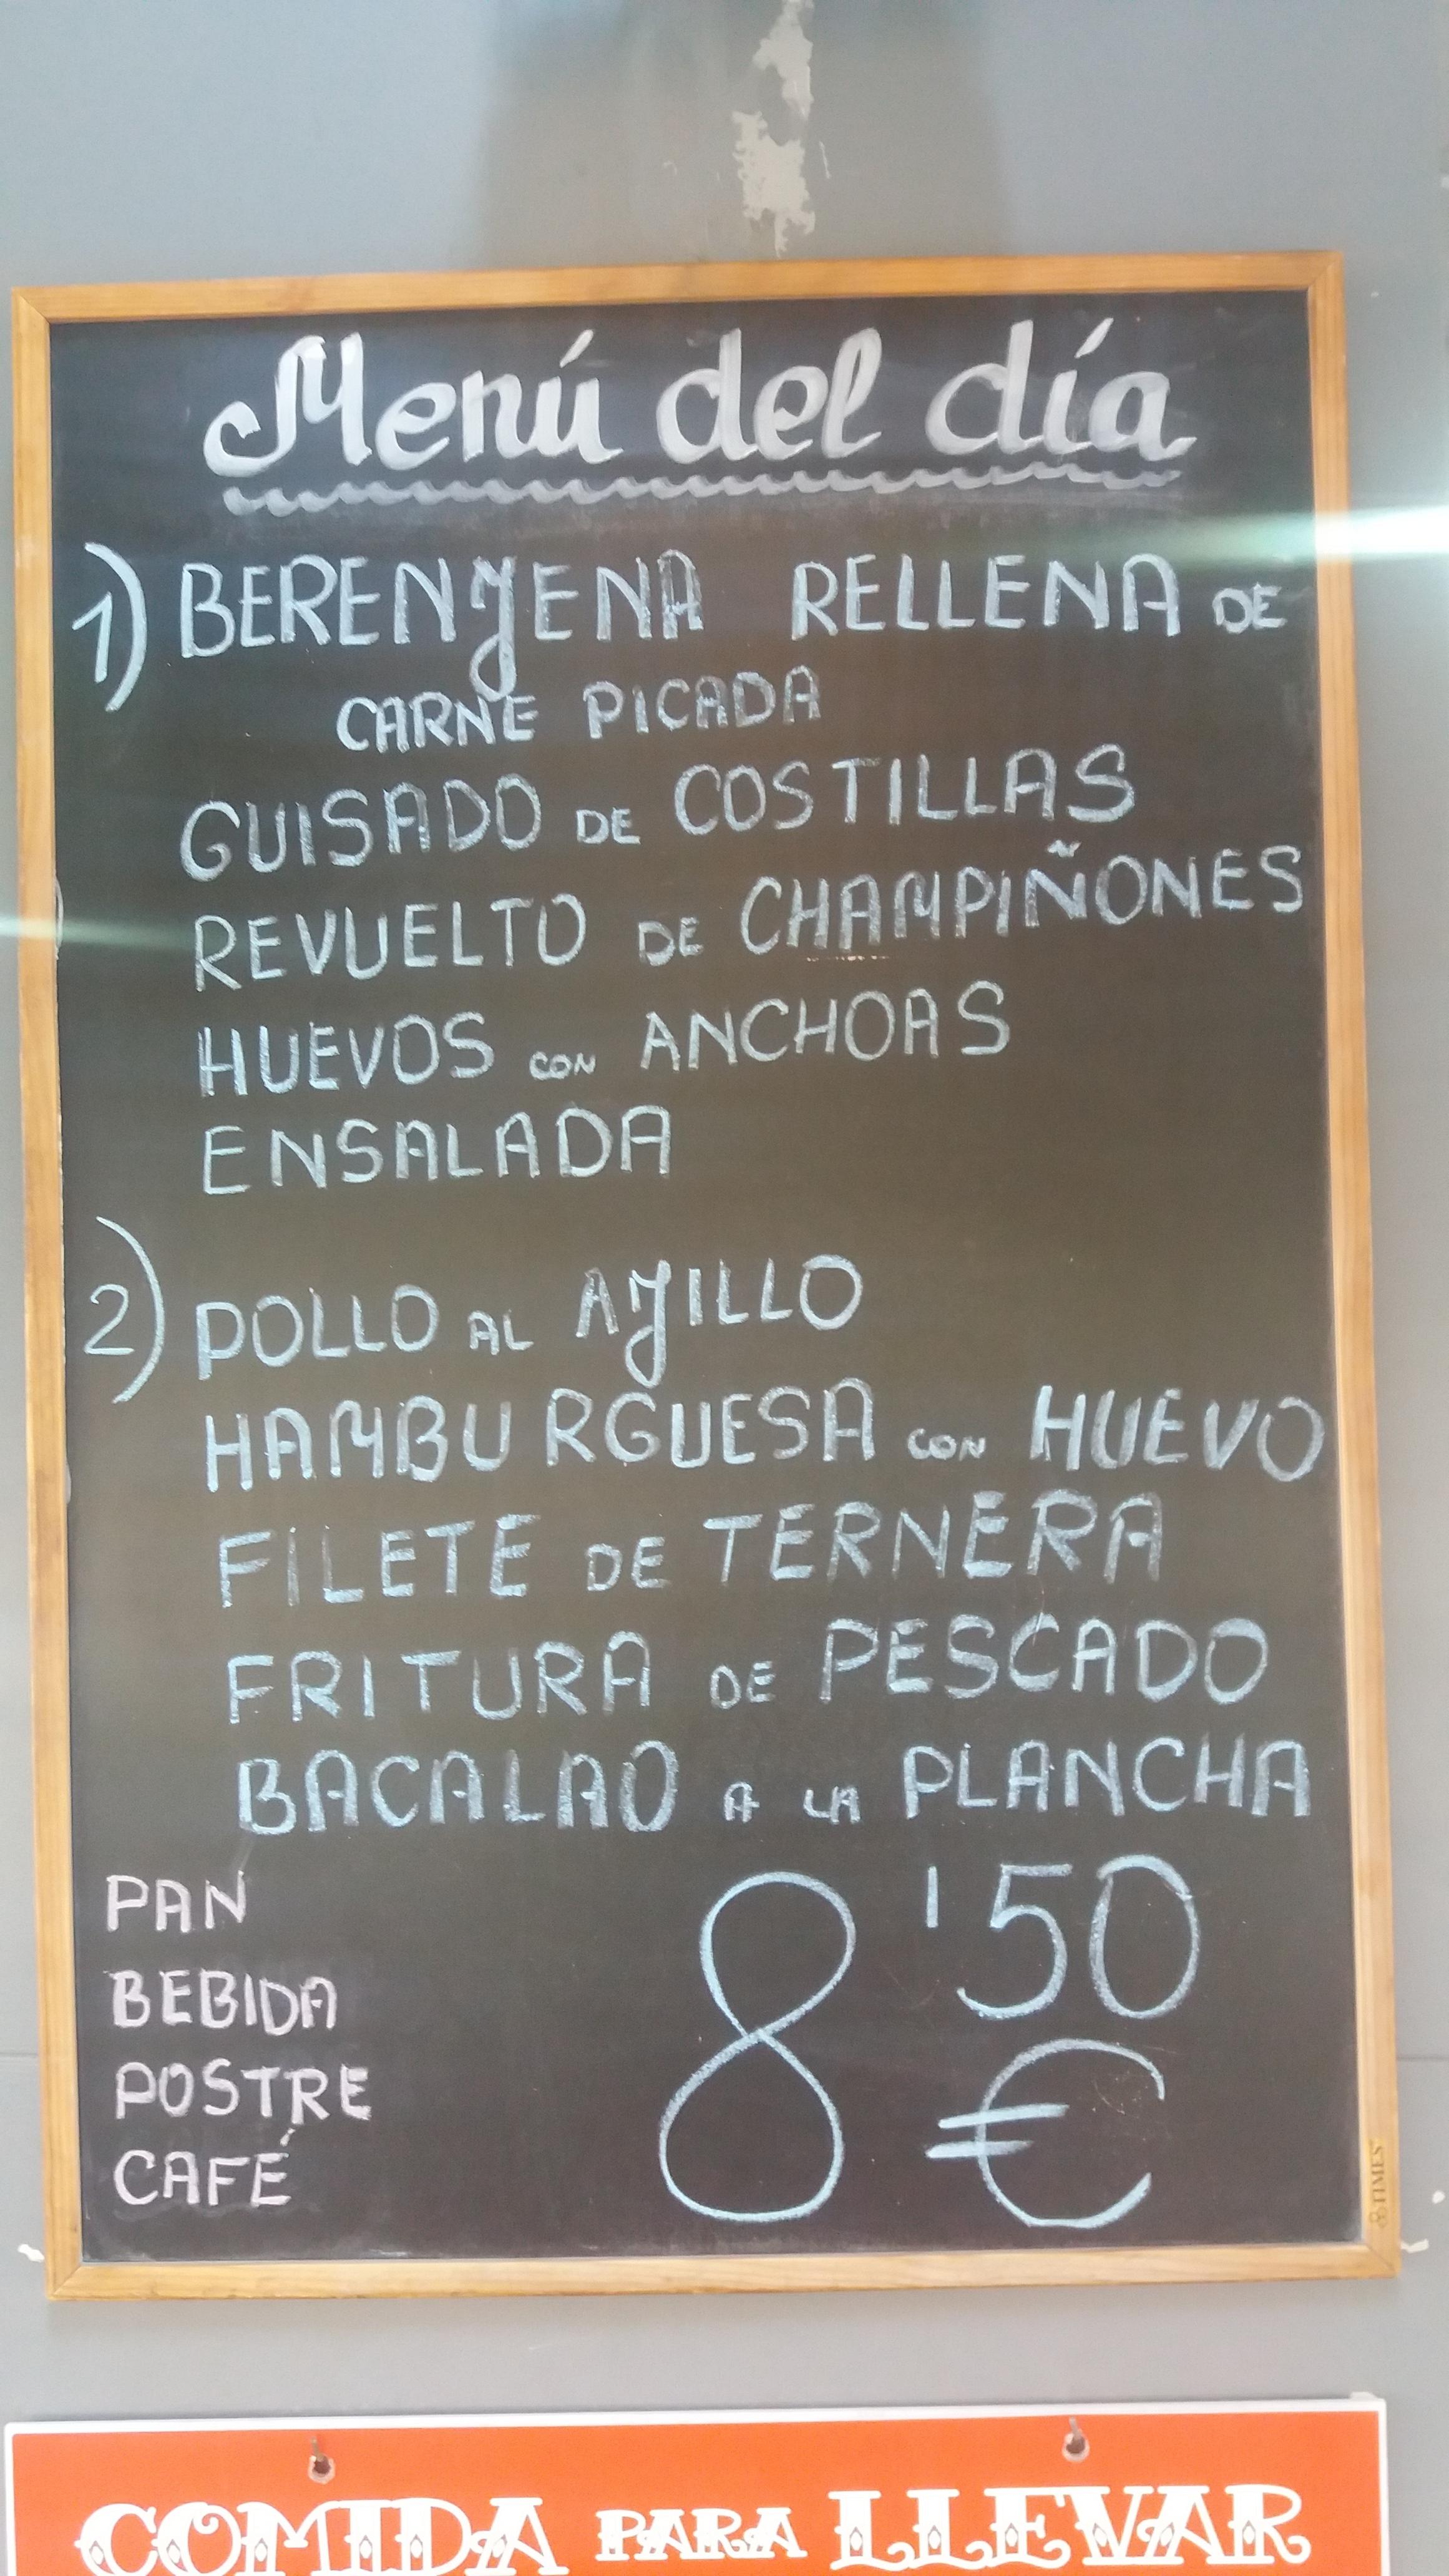 Menú del día
1) BERENJENA RELLENA DE
CARNE PICADA
GUISADO DE COSTILLAS
REVUELTO DE CHAMPIÑONES
HUEVOS CON ANCHOAS
ENSALADA
2) POLLO AL AJILLO
HAMBURGUESA CON HUEVO
FILETE DE TERNERA
FRITURA DE PESCADO
BACALAO A LA PLANCHA
PAN
BEBIDA
POSTRE
CAFÉ
8'50
€
TIMES
COMIDA PARA LLEVAR